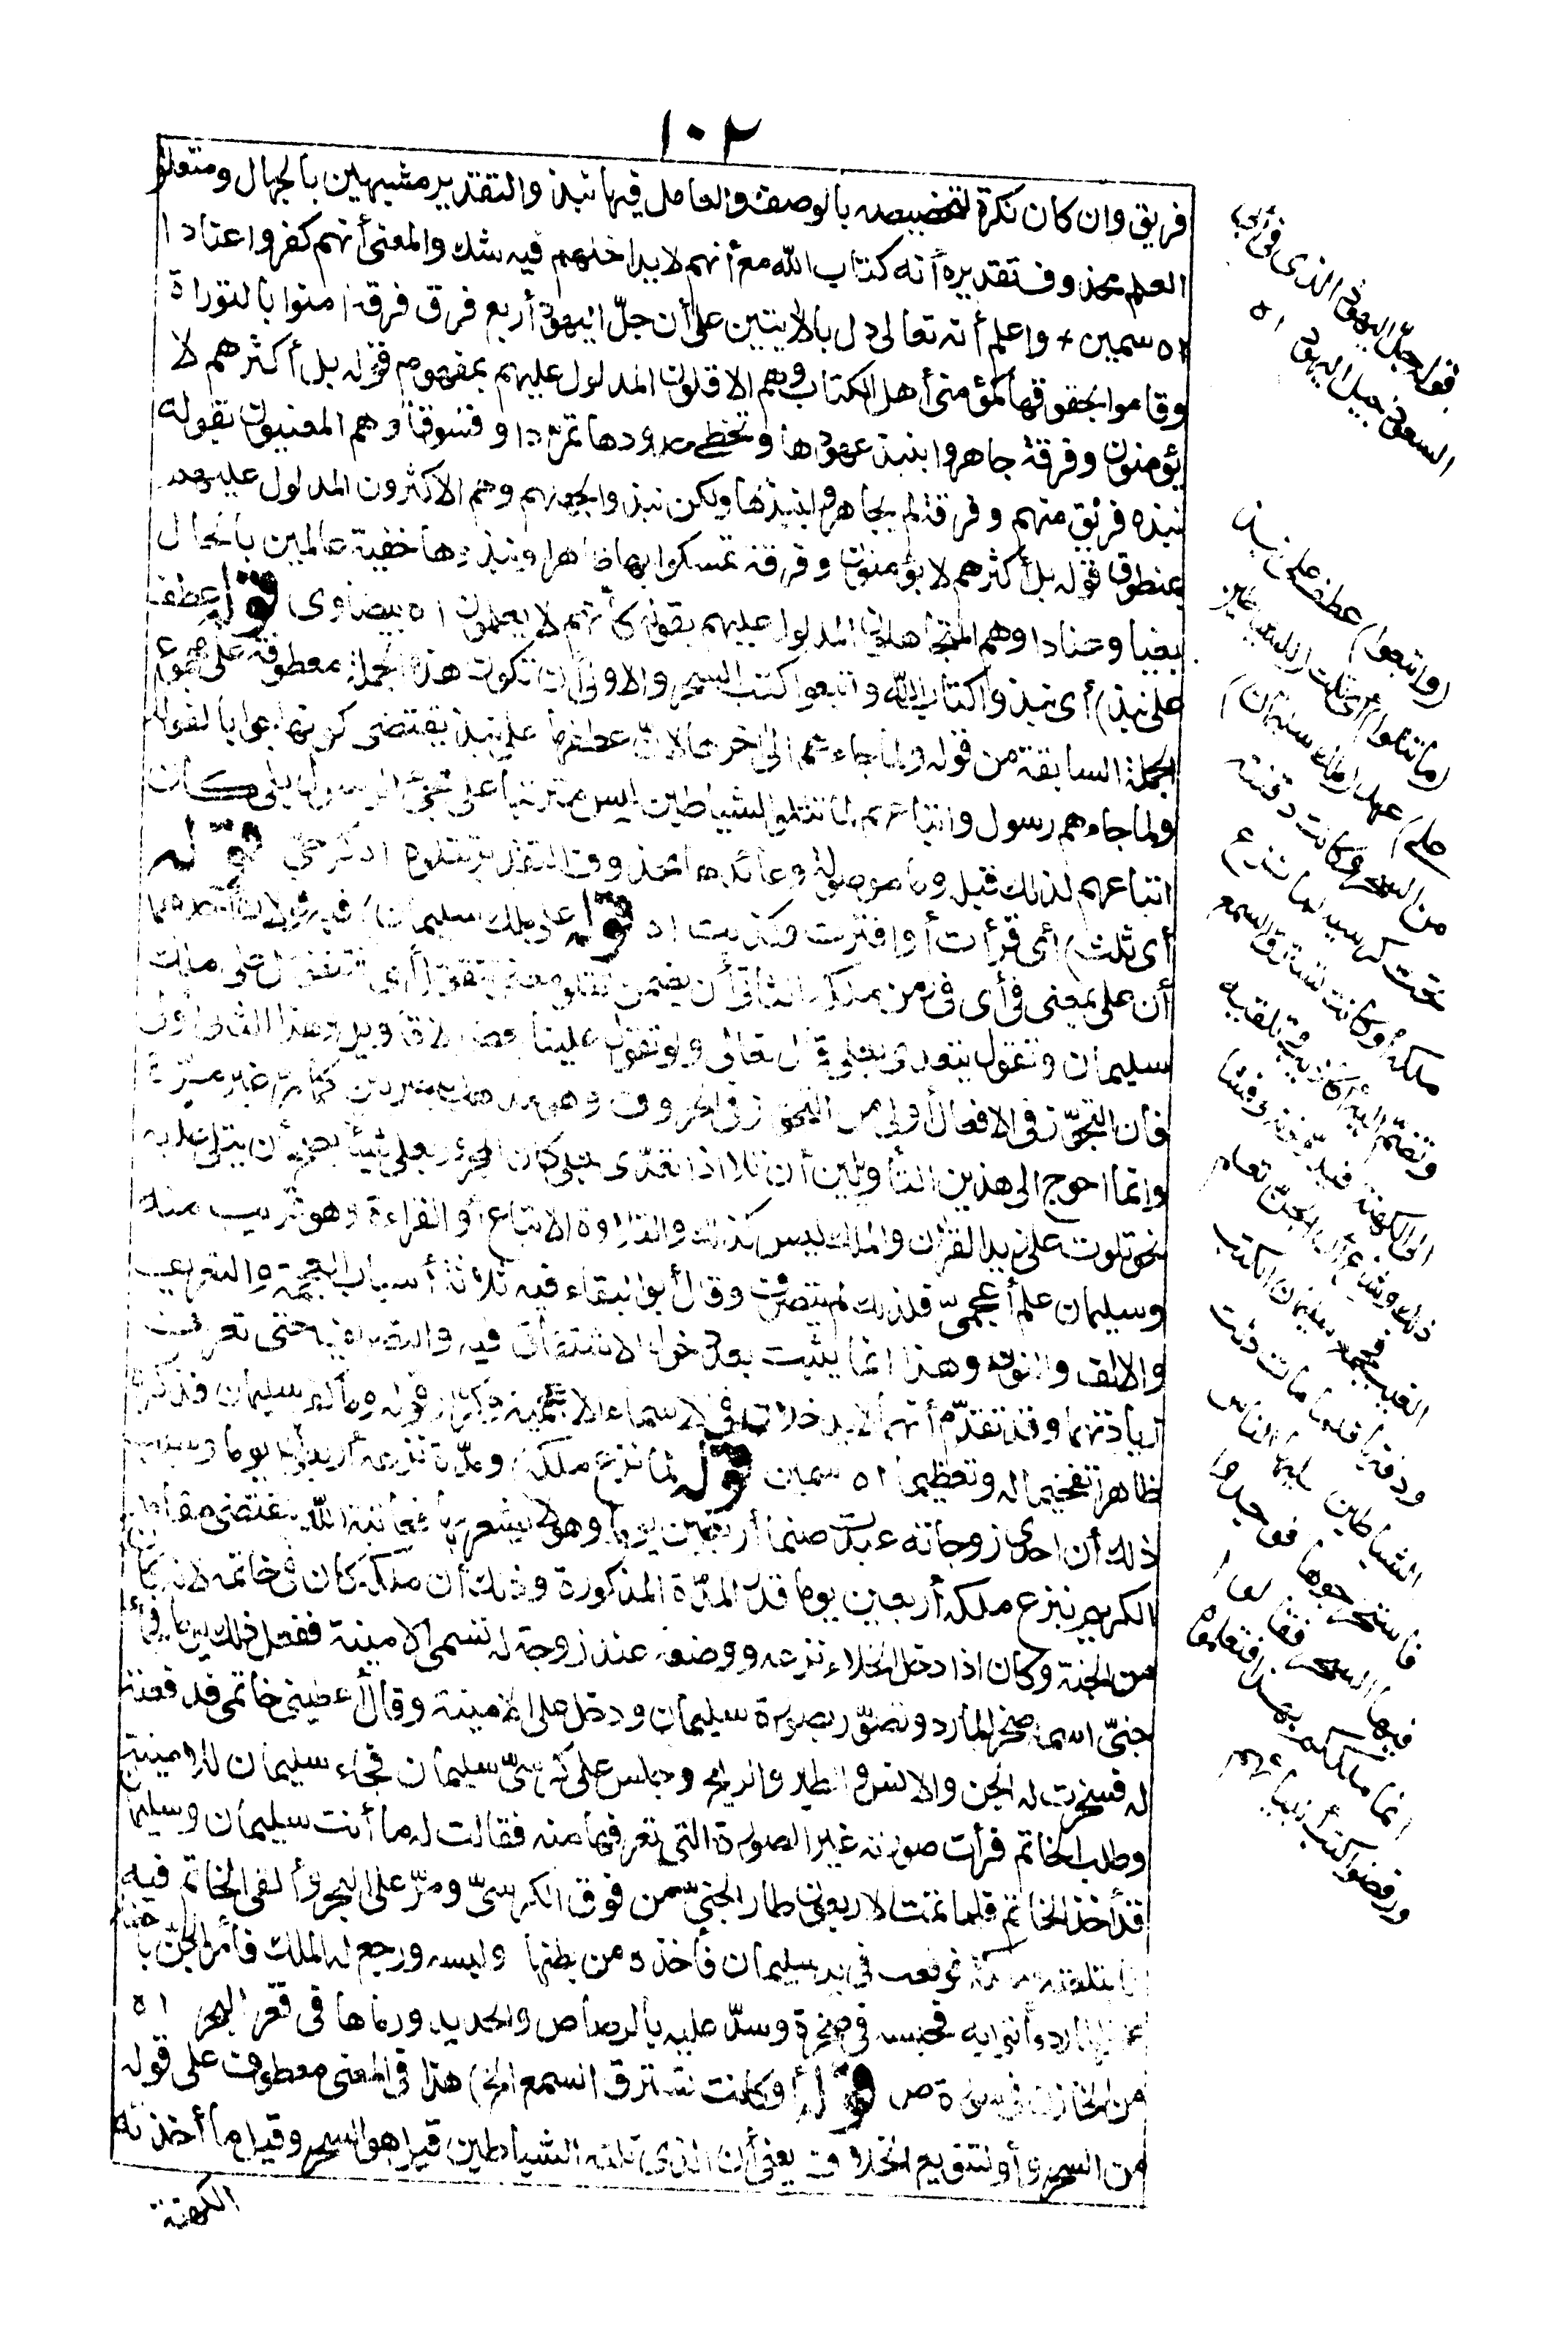 ١٠٢
فريق وان كان نكرة لتخصيصه بالوصف والعامل فيها نبذ والتقدير مشبهين بالجهال ومتعلق
العلم محذوف تقديره أنه كتاب الله مع أنهم لا يداخلهم فيه شك والمعنى أنهم كفروا عنادا ا
ه سمين + واعلم أنه تعالى دل بالآيتين على أن جلّ اليهود أربع فرق فرقة آمنوا بالتوراة
وقاموا بحقوقها كمؤمنى أهل الكتاب وهم الاقلون المدلول عليهم بمفهوم قوله بل أكثرهم لا
يؤمنون وفرقة جاهروا بنبذ عهودها وتخطى حدودها تمرّدا وفسوقا وهم المعنيون بقوله
نبذه فريق منهم وفرقة لم يجاهروا بنبذها ولكن نبذوا لجهلهم وهم الاكثرون المدلول عليهم
بمنطوق قوله بل أكثرهم لا يؤمنون وفرقة تمسكوا بها ظاهرا ونبذوها خفية عالمين بالحال
بغيا وعنادا وهم المتجاهلون المدلول عليهم بقوله كأنهم لا يعلمون ا ه بيضاوى قوله عطف
على نبذ) أى نبذوا كتاب الله واتبعوا كتب السحر والاولى أن تكون هذه الجملة معطوفة على مجموع
الجملة السابقة من قوله ولما جاءهم الى آخرها لانّ عطفها على نبذ يقتضى كونها جوابا لقوله
ولما جاءهم رسول واتباعهم لما تتلو الشياطين ليس مترتبا على مجىء الرسول بل كان
اتباعهم لذلك قبله وما موصولة وعائدها محذوف والتقدير تتلوه ا ه كرخى قوله
أى تلت) أى قرأت أو افترت وكذبت ا ه قوله على ملك سليمان) فيه قولان أحدهما
أن على بمعنى فى أى فى زمن ملكه الثانى أن يضمن تتلو معنى تتقول أى تتقول على ملك
سليمان وتتقول يتعدى بعلى قال تعالى ولو تقول علينا بعض الاقاويل وهذا الثانى أولى
فان التجوّز فى الافعال أولى من التجوّز فى الحروف وهو مذهب البصريين كما مرّ غير مرّة
وانما احوج الى هذين التأويلين أن تلا اذا تعدّى بعلى كان المجرور بعلى شيأ يصح أن يتلى عليه
نحو تلوت على زيد القرآن والملك ليس كذلك والتلاوة الاتباع أو القراءة وهو قريب منه
وسليمان علم أعجمىّ فلذلك لم ينصرف وقال أبو البقاء فيه ثلاثة أسباب العجمة والتعريف
والالف والنون وهذا انما يثبت بعد دخول الاشتقاق فيه والتصريف حتى تعرف
زيادتهما وقد تقدّم أنهما لا يدخلان فى الاسماء الاعجمية وكرّر قوله وما كفر سليمان فذكره
ظاهرا تفخيما له وتعظيما ا ه سمين قوله لما نزع ملكه) ومدّة نزعه أربعون يوما وسبب
ذلك أن احدى زوجاته عبدت صنما أربعين يوما وهو لا يشعر بها فعاتبه الله بمقتضى مقامه
الكريم بنزع ملكه أربعين يوما قدر المدّة المذكورة وذلك أن ملكه كان فى خاتمه لانه كان
من الجنة وكان اذا دخل الخلاء نزعه ووضعه عند زوجة له تسمى الامينة ففعل ذلك يوما فجاء
جنىّ اسمه صخر المارد وتصوّر بصورة سليمان ودخل على الامينة وقال أعطينى خاتمى فدفعته
له فسخرت له الجن والانس والطير والريح وجلس على كرسىّ سليمان فجاء سليمان للامينة
وطلب الخاتم فرأت صورته غير الصورة التى تعرفها منه فقالت له ما أنت سليمان وسليمان
قد أخذ الخاتم فلما تمت الاربعون طار الجنىّ من فوق الكرسىّ ومرّ على البحر وألقى الخاتم فيه
فابتلعته سمكة فوقعت فى يد سليمان فأخذه من بطنها ولبسه ورجع له الملك فأمر الجنّ باحضار
صخر المارد فأتوا به فحبسه فى صخرة وسدّ عليه بالرصاص والحديد ورماها فى قعر البحر ا ه
من الخازن فى سورة ص قوله أو كانت تسترق السمع الخ) هذا فى المعنى معطوف على قوله
من السحر وأو لتنويع الخلاف يعنى أن الذى تلته الشياطين قيل هو السحر وقيل ما أخذته
الكهنة
قوله جلّ اليهود الذى فى
السعود جيل اليهود ا ه
(واتبعوا) عطف على نبذ
(ما تتلوا) أى تلت (الشياطين
على) عهد (ملك سليمان)
من السحر وكانت دفنته
تحت كرسيه لما نزع
ملكه أو كانت تسترق السمع
وتضم اليه أكاذيب وتلقيه
الى الكهنة فيدوّنونه وفشا
ذلك وشاع أن الجنّ تعلم
الغيب فجمع سليمان الكتب
ودفنها فلما مات دلت
الشياطين عليها الناس
فاستخرجوها فوجدوا
فيها السحر فقالوا
انما ملككم بهذا فتعلموه
ورفضوا كتب أنبيائهم